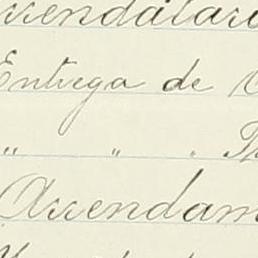 Arrendatari
Entrega de
" " . Th
Arrendam